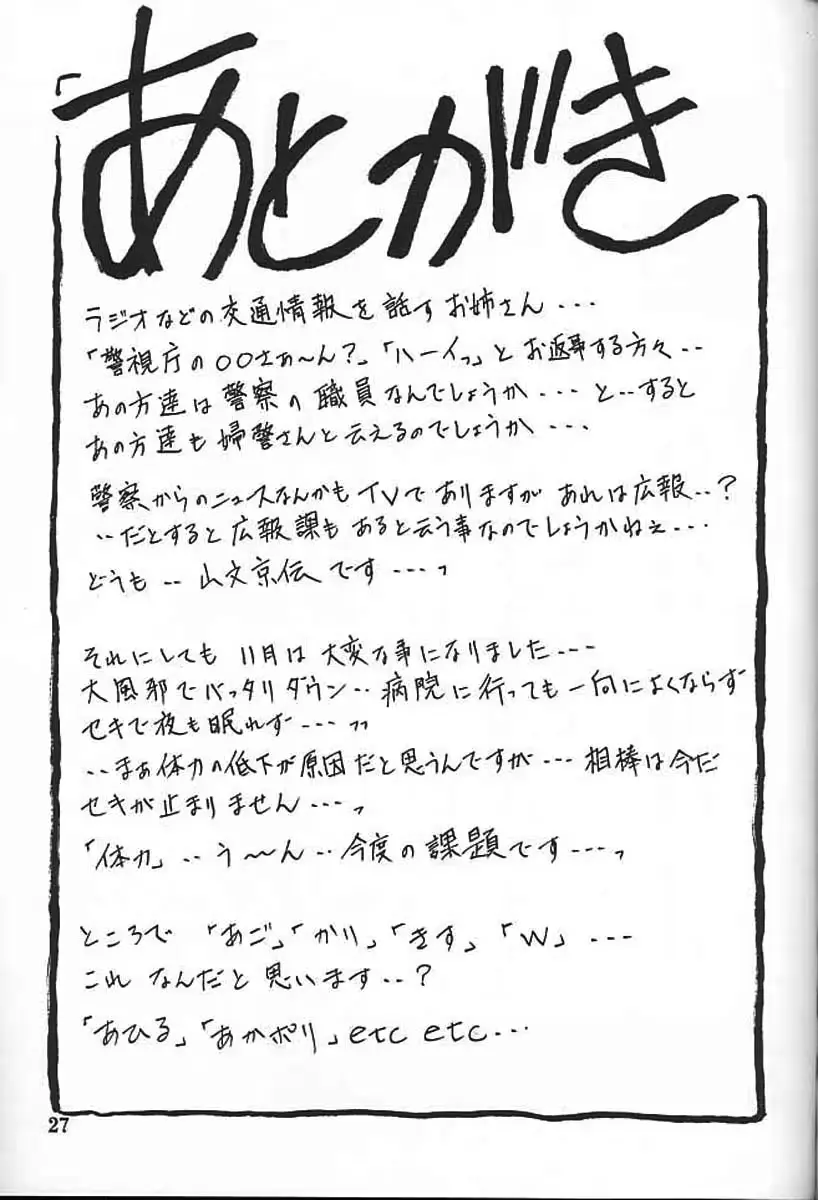 「あとがき
ラジオなどの交通情報を話すお姉さん...
「警視庁の〇〇さぁ〜ん?」「ハーイっ」とお返事する方々..
あの方達は警察の職員なんでしょうか...と..すると
あの方達も婦警さんと云えるのでしょうか...
警察からのニュースなんかもTVでありますがあれは広報..?
..だとすると広報課もあると云う事なのでしょうかねぇ...
どうも..山文京伝です...っ
それにしても11月は大変な事になりました...
大風邪でバッタリダウン..病院に行っても一向によくならず
セキで夜も眠れず...っっ
..まぁ体力の低下が原因だと思うんですが...相棒は今だ
セキが止まりません...っ
「体力」..う〜ん..今度の課題です...っ
ところで「あご」「かり」「きす」「W」...
これなんだと思います..?
「あひる」「あかポリ」etc etc...
27